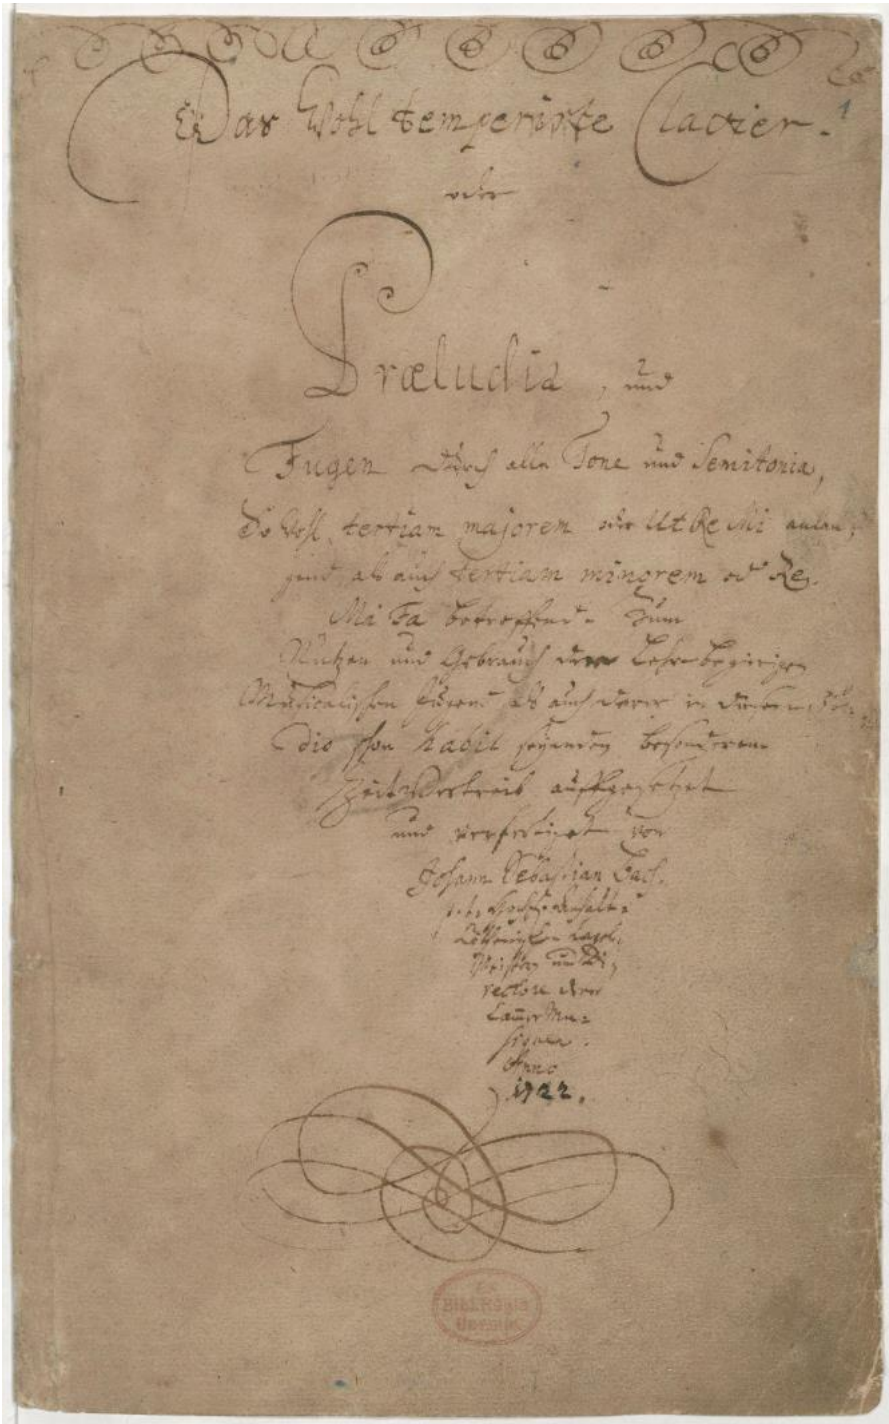 Das Wohltemperirte Clavier.
1
oder
Præludia, und
Fugen durch alle Tone und Semitonia,
So wohl tertiam majorem oder Ut Re Mi anlan-
gend, als auch tertiam minorem oder Re
Mi Fa betreffend. Zum
Nutzen und Gebrauch der Lehr-begierigen
Musicalischen Jugend als auch derer in diesem stu-
dio schon habil seyenden besonderem
Zeit Vertreib auffgesetzet
und verfertiget von
Johann Sebastian Bach.
p. t. Hochf. Anhalt-
Cöthenischen Capel-
Meistern und Di-
rectore derer
Cammer Mu-
siquen.
Anno
1722.
Ex
Bibl. Regia